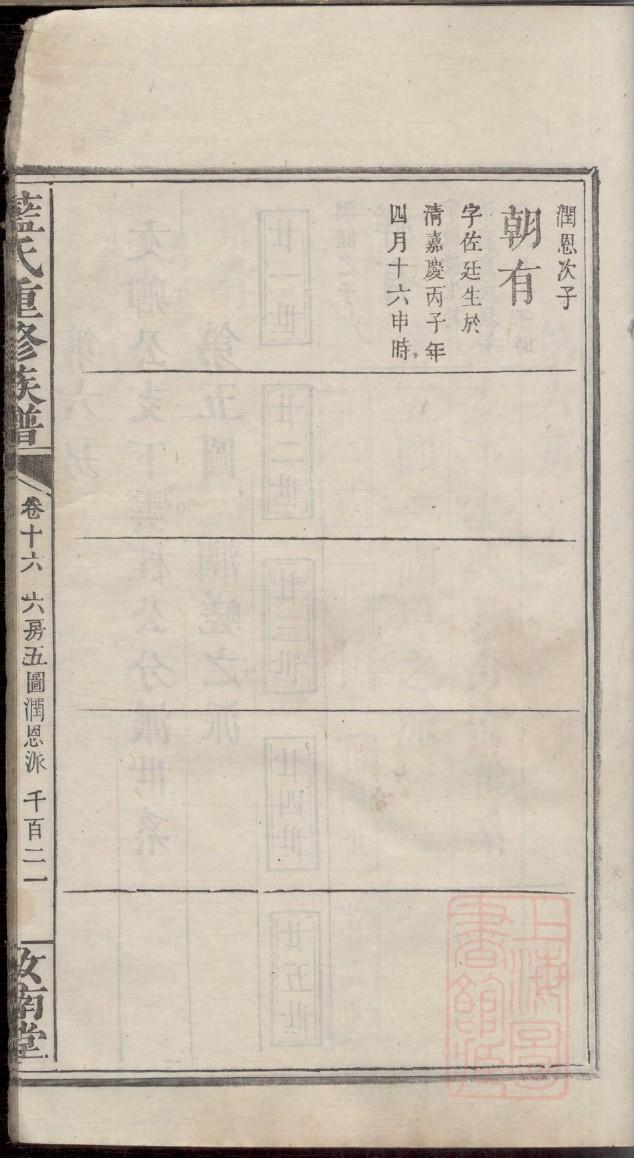 潤恩次子
朝有
字佐廷生於
清嘉慶丙子年
四月十六申時
藍氏重修族譜
卷十六 六房五圖潤恩派 千百二一
汝南堂
上海圖
書館藏